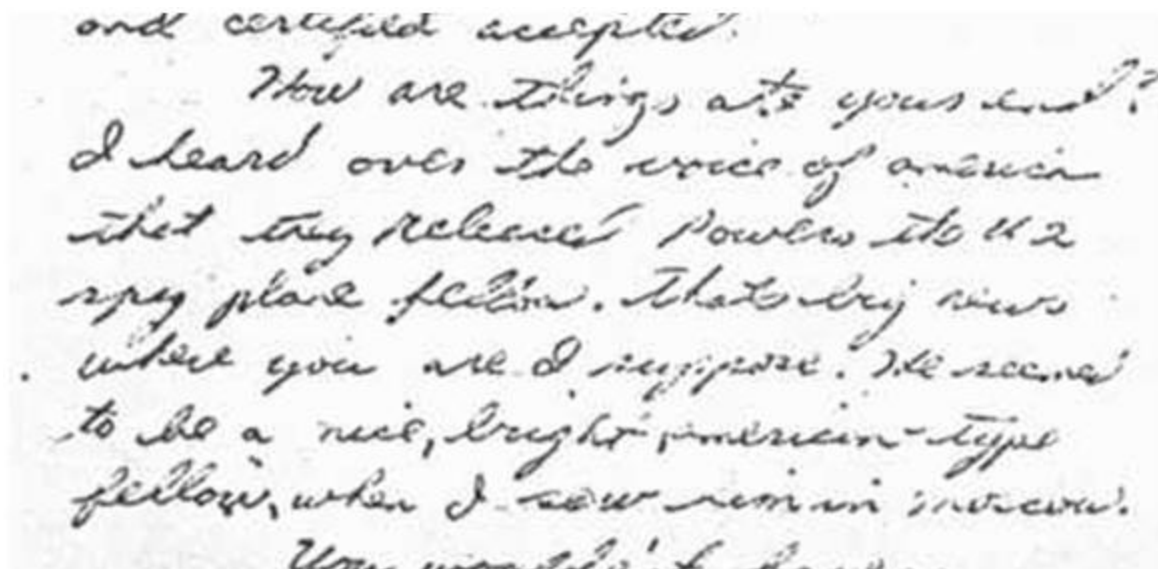 and certifed accepted.
How are things at yours end?
I heard over the voice of america
that they released Powers the U2
spy plane fellow. Thats big news
where you are I suppose. He seemed
to be a nice, bright american-type
fellow, when I saw him in moscow.
You